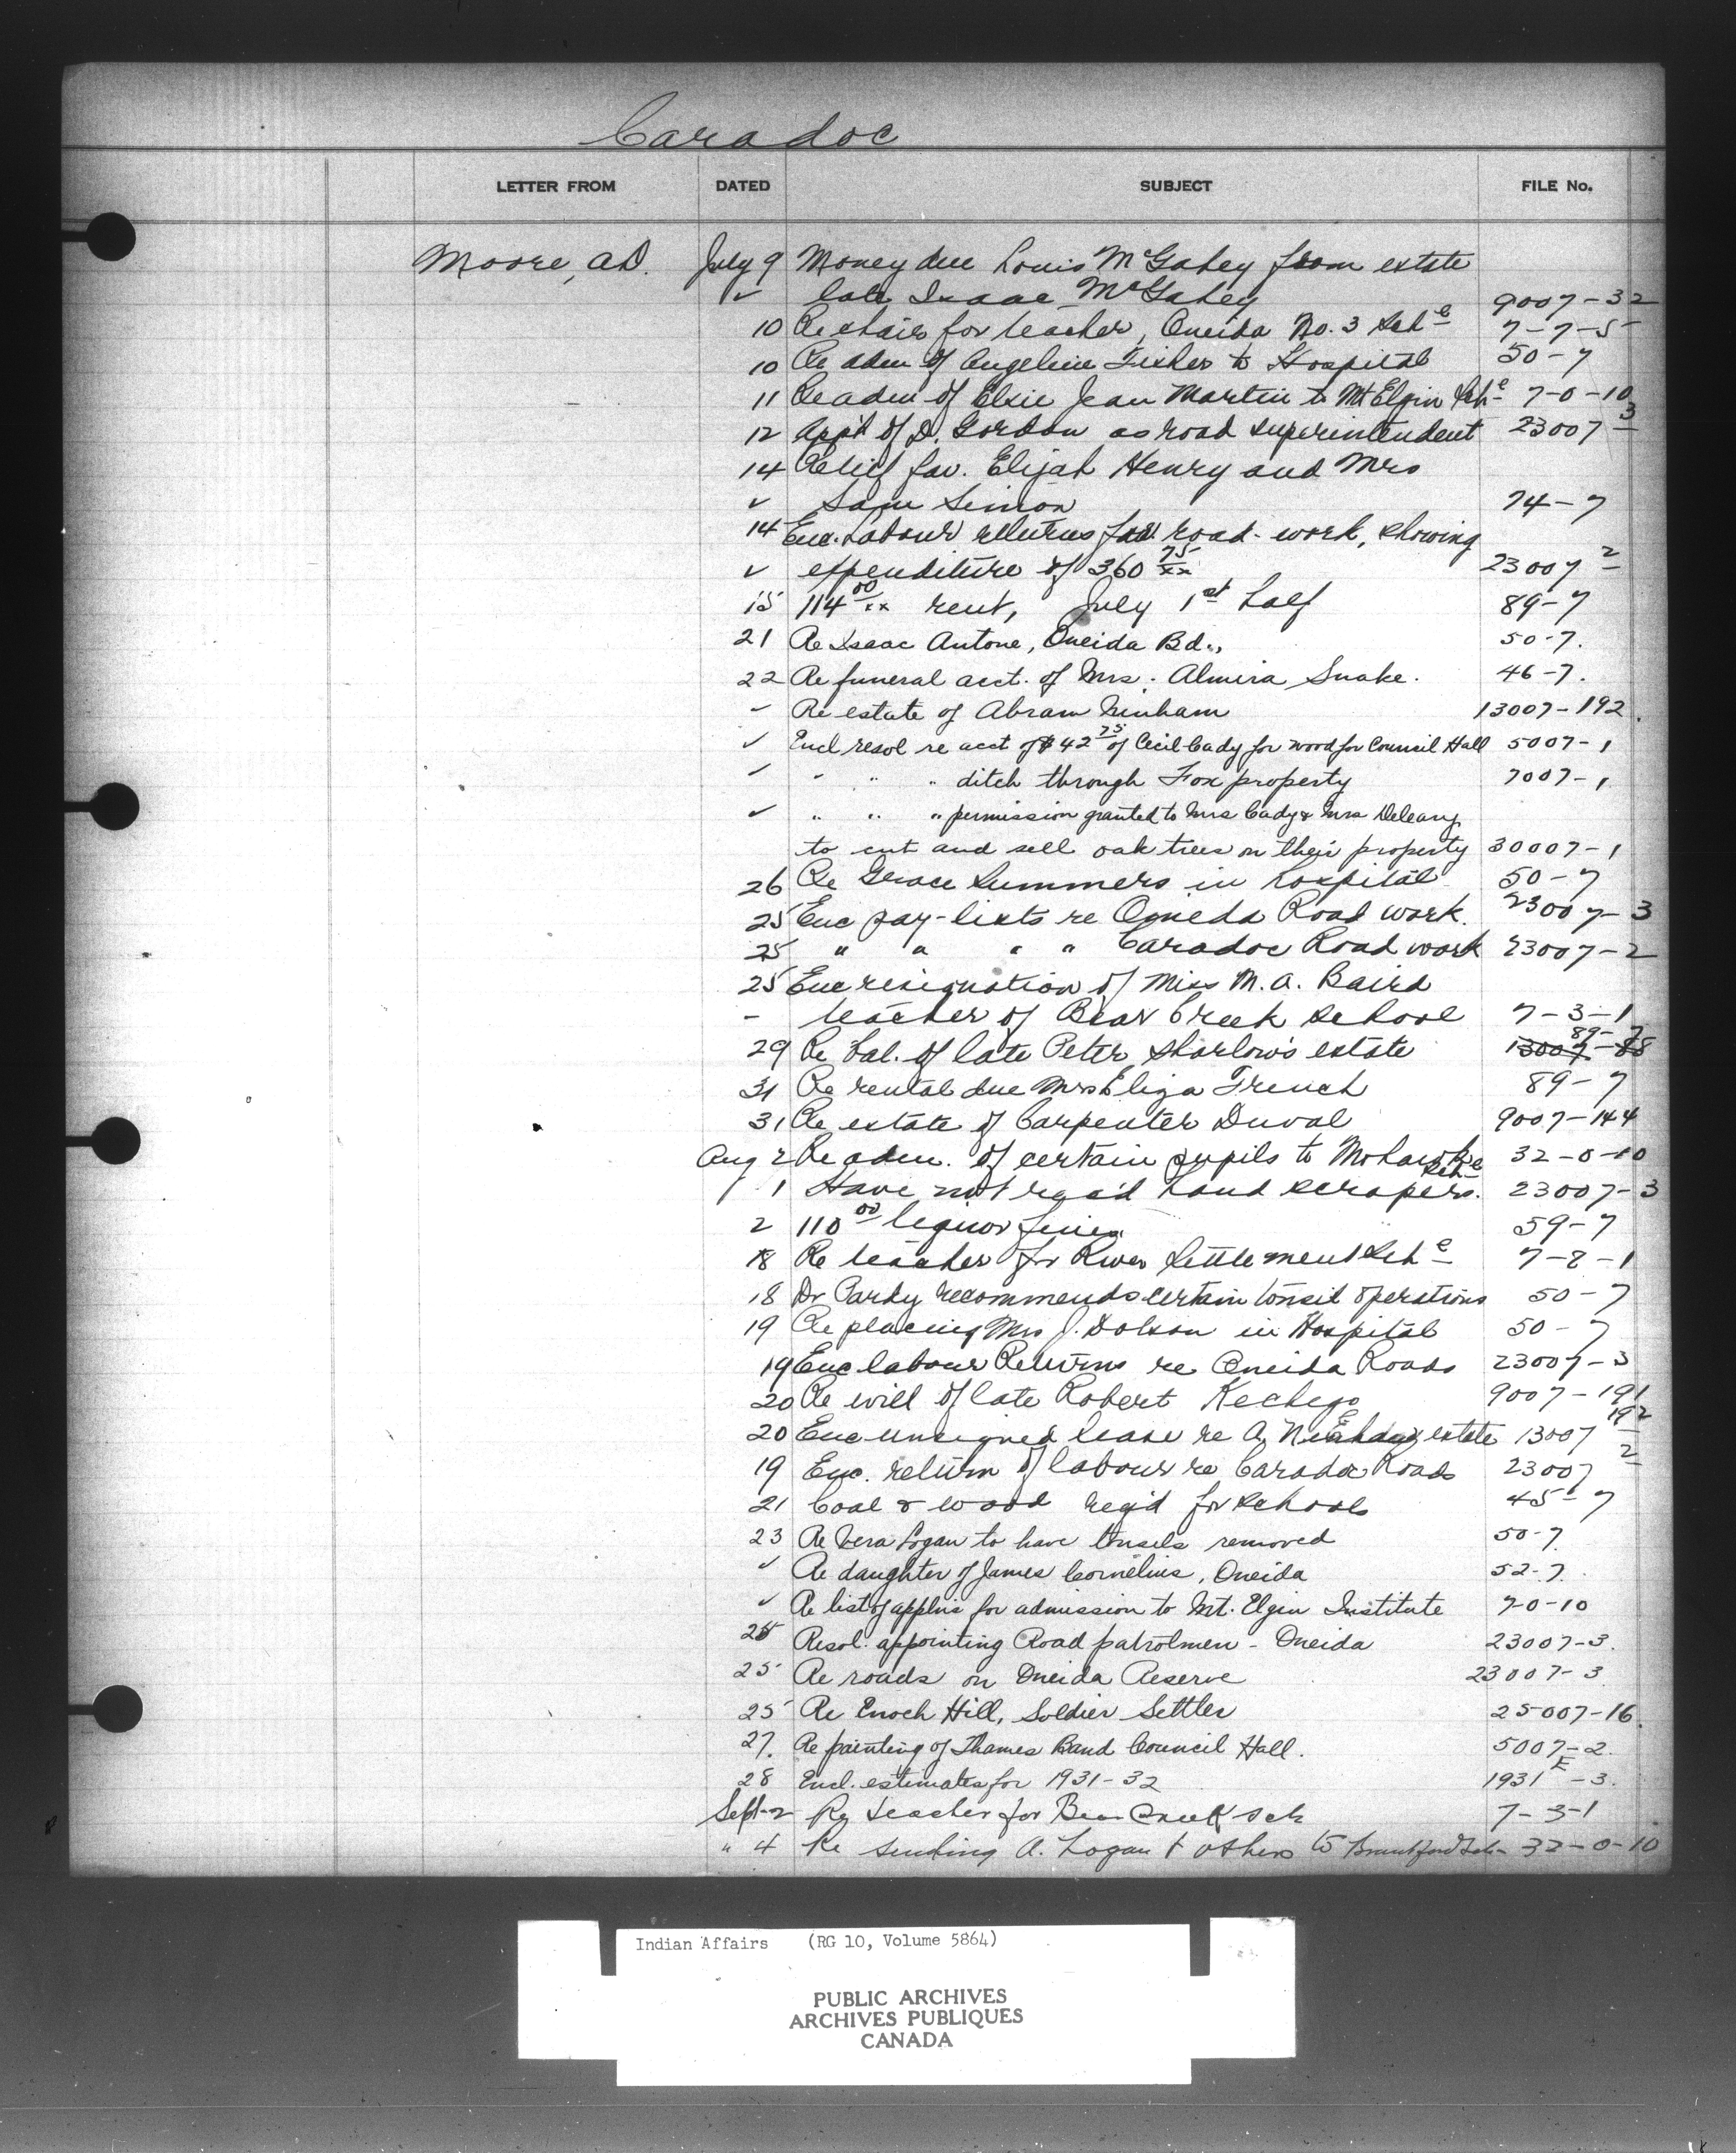 Caradoc
LETTER FROM DATED SUBJECT FILE No.
Moore, A.D. July 9 Money due Louis McGahey from estate
✓ late Isaac McGahey 9007-32
10 Re chair for teacher, Oneida No. 3 Sch 7-7-5
10 Re adm of Angeline Fisher to Hospital 50-7
11 Re adm of Elsie Jean Martin to Mt Elgin Sch 7-0-10
12 App't of D. Gordon as road superintendent 23007-3
14 Relief fav. Elijah Henry and Mrs
✓ Sam Simon 74-7
14 Enc. Labour returns for road-work, showing
✓ expenditure of 360 75/xx 23007-2
15 114 00/xx rent, July 1st half 89-7
21 Re Isaac Antone, Oneida Bd., 50-7.
22 Re funeral acct. of Mrs. Almira Snake. 46-7.
Re estate of Abram Ninham 13007-192.
✓ Encl resol re acct of $42 75 of Cecil Cady for wood for Council Hall 5007-1
✓ " " " ditch through Fox property 7007-1
✓ " " " permission granted to Mrs Cady & Mrs Deleary
to cut and sell oak trees on their property 30007-1
26 Re Grace Summers in hospital 50-7
25 Enc pay-lists re Oneida Road work. 23007-3
25 " " " " Caradoc Road work 23007-2
25 Enc resignation of Miss M. A. Baird
- teacher of Bear Creek School 7-3-1
29 Re bal. of late Peter Sharlow's estate 89-7 13007-88
31 Re rental due Mrs Eliza French 89-7
31 Re estate of Carpenter Duval 9007-144
Aug 2 Re adm. of certain pupils to Mohawk Sch 32-0-10
1 Have not rec'd hand scrapers. 23007-3
2 110 00 liquor fines 59-7
18 Re teacher for River Settlement Sch 7-2-1
18 Dr Pardy recommends certain tonsil operations 50-7
19 Re placing Mrs J. Dolson in Hospital 50-7
19 Enc labour Returns re Oneida Roads 23007-3
20 Re will of late Robert Kechego 9007-191
20 Enc unsigned lease re A. Ninham estate 13007-192
19 Enc. return of labour re Caradoc Roads 23007-2
21 Coal & wood req'd for schools 45-7
23 Re Vera Logan to have tonsils removed 50-7
✓ Re daughter of James Cornelius, Oneida 52-7.
✓ Re list of applns for admission to Mt. Elgin Institute 7-0-10
25 Resol. appointing Road patrolmen - Oneida 23007-3.
25 Re roads on Oneida Reserve 23007-3
25 Re Enoch Hill, Soldier Settler 25007-16.
27. Re painting of Thames Band Council Hall. 5007-2.
28 Encl. estimates for 1931-32 1931 E -3.
Sept-2 Re teacher for Bear Creek sch 7-3-1
" 4 Re sending A. Logan & others to Brantford Sch- 32-0-10
Indian Affairs (RG 10, Volume 5864)
PUBLIC ARCHIVES
ARCHIVES PUBLIQUES
CANADA